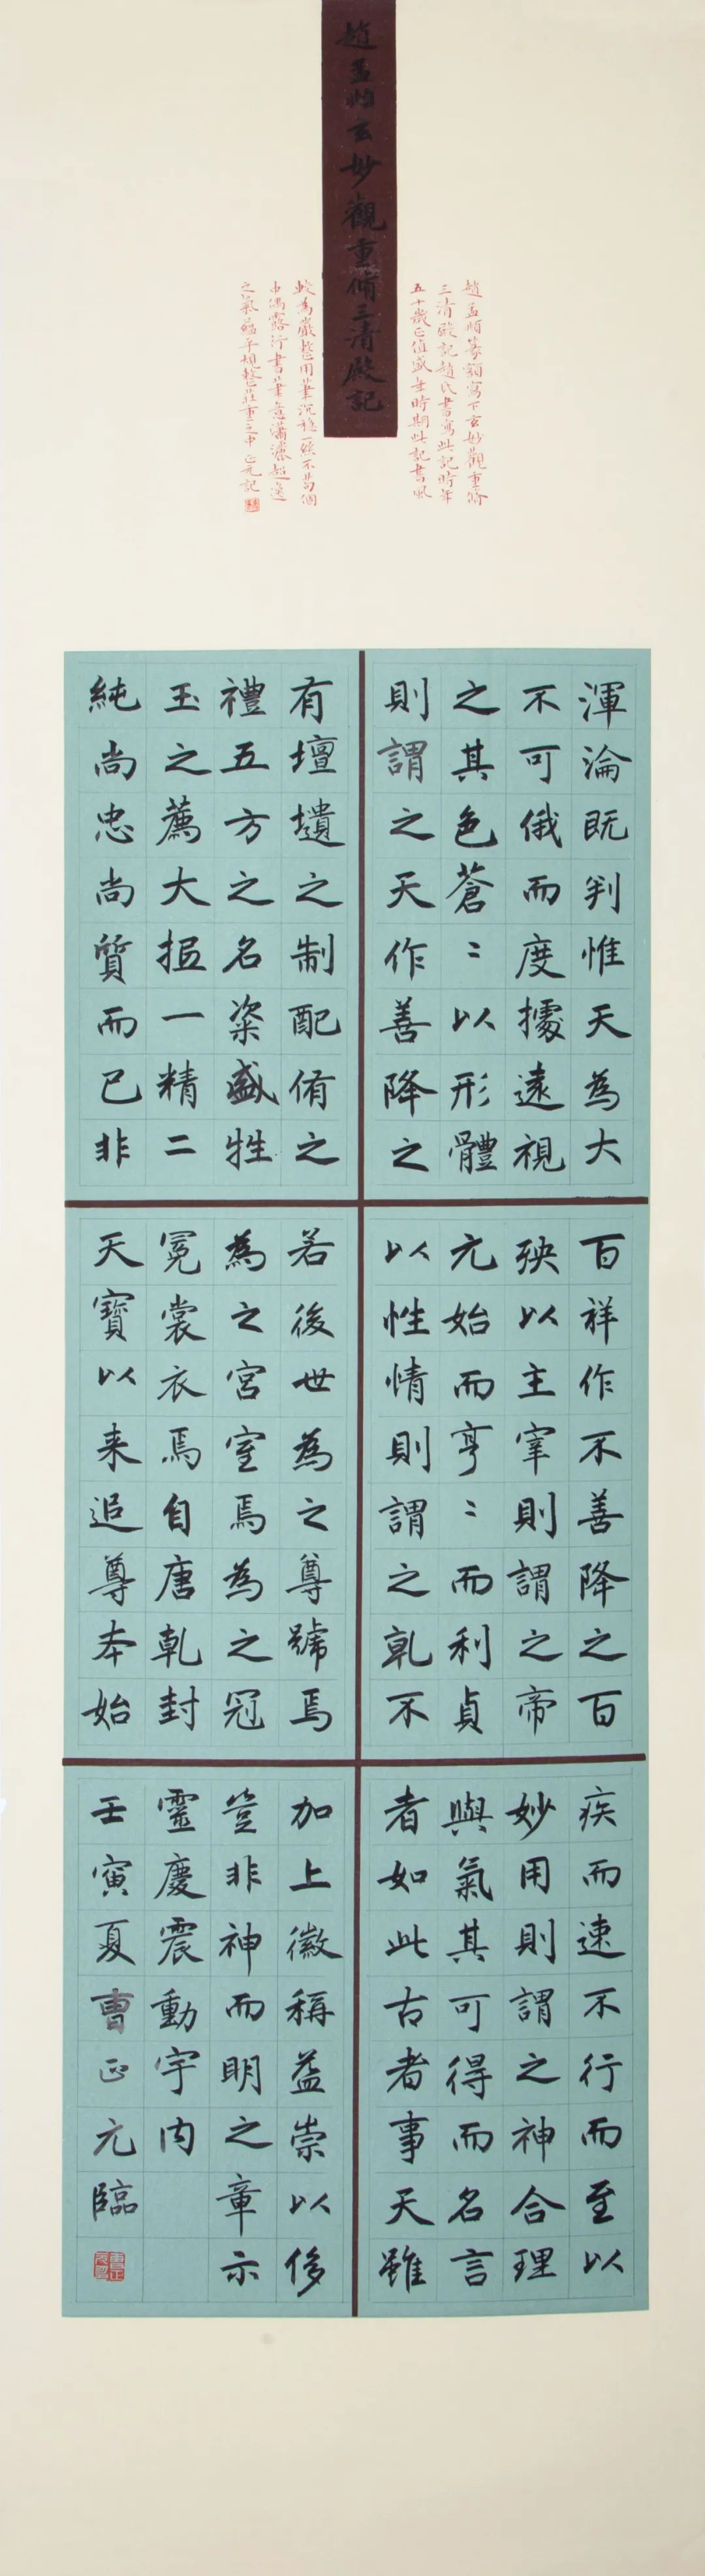 趙孟頫玄妙觀重脩三清殿記
趙孟頫篆額寫下玄妙觀重脩
三清殿記趙氏書寫此記時年
五十歲正值盛年時期此記書風
較為嚴整用筆沉穩一絲不苟偶
中偶露行書筆意瀟灑超逸
之氣蘊于規整莊重之中 正元記
渾淪既判惟天為大
不可俄而度據遠視
之其色蒼〻以形體
則謂之天作善降之
百祥作不善降之百
殃以主宰則謂之帝
元始而亨〻而利貞
以性情則謂之乾不
疾而速不行而至以
妙用則謂之神合理
與氣其可得而名言
者如此古者事天雖
有壇壝之制配侑之
禮五方之名粢盛牲
玉之薦大抵一精二
純尚忠尚質而已非
若後世為之尊號焉
為之宮室焉為之冠
冕裳衣焉自唐乾封
天寶以来追尊本始
加上徽稱益崇以侈
豈非神而明之章示
靈慶震動宇内
壬寅夏曹正元臨